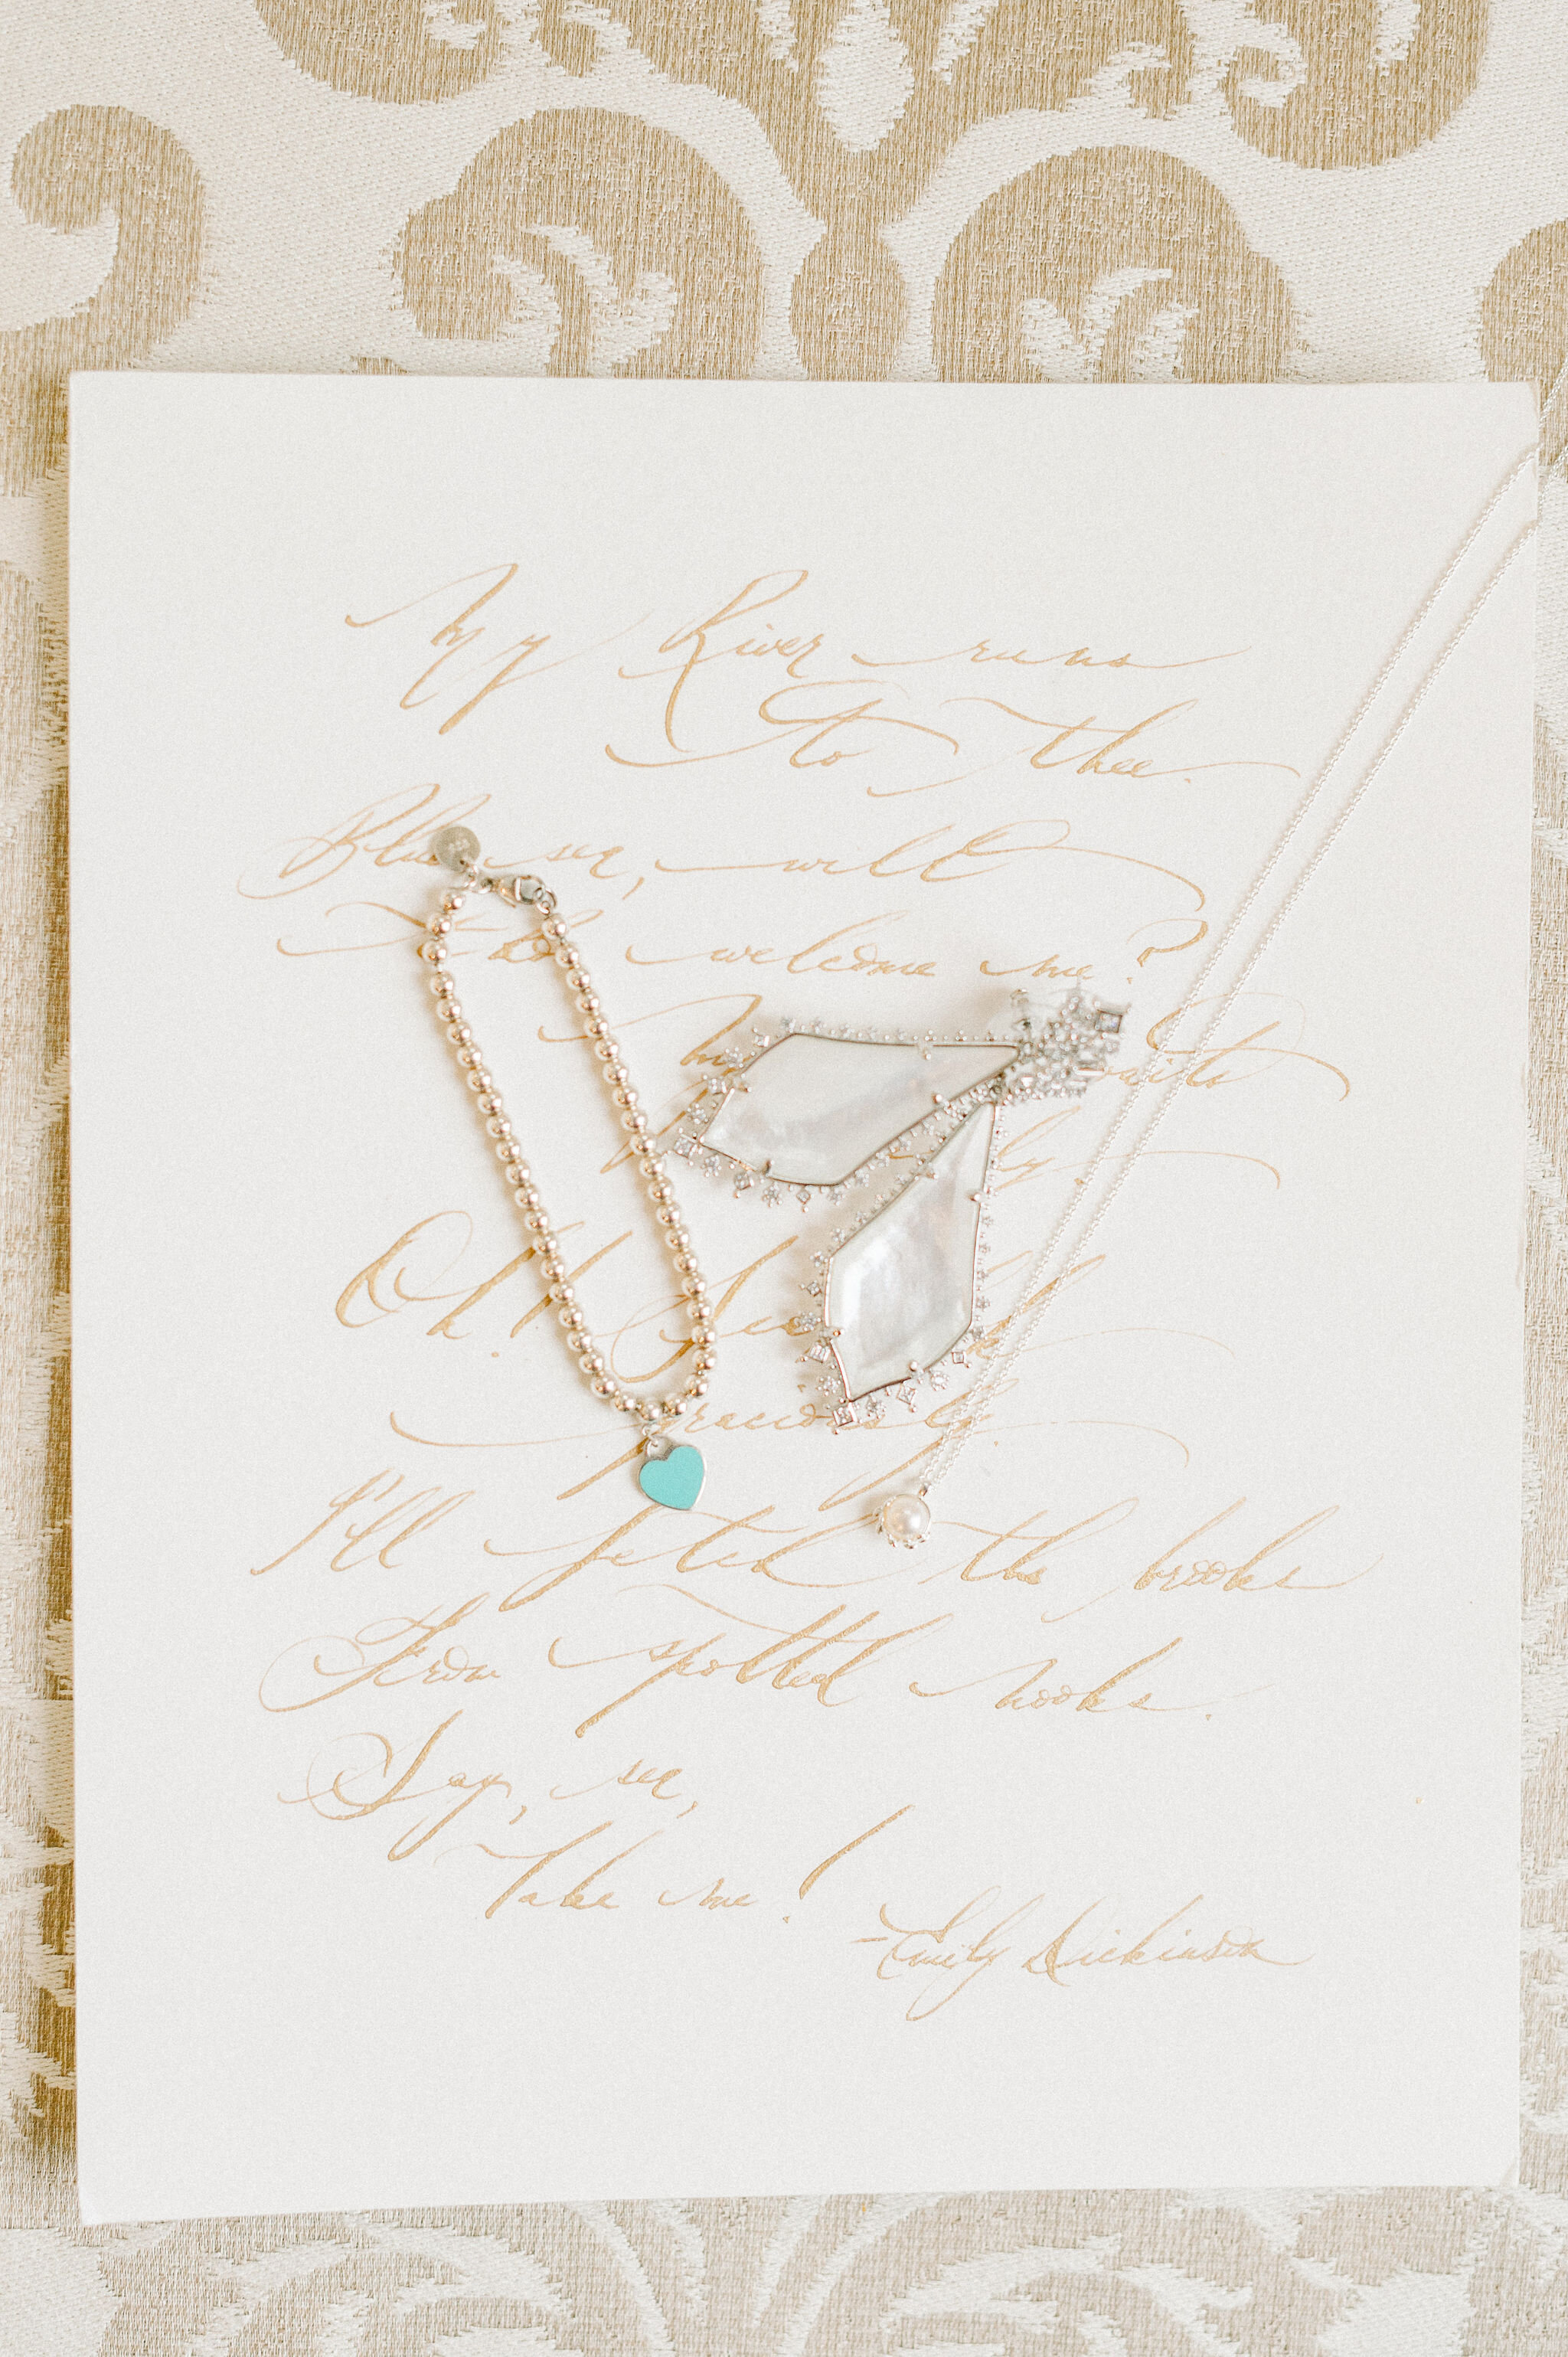 My River runs
to thee.
Blue sea, will
welcome me?
My
Oh! Sea
graciously.
I'll fetch the brooks
From spotted nooks.
Say, sea,
Take me!
-Emily Dickinson